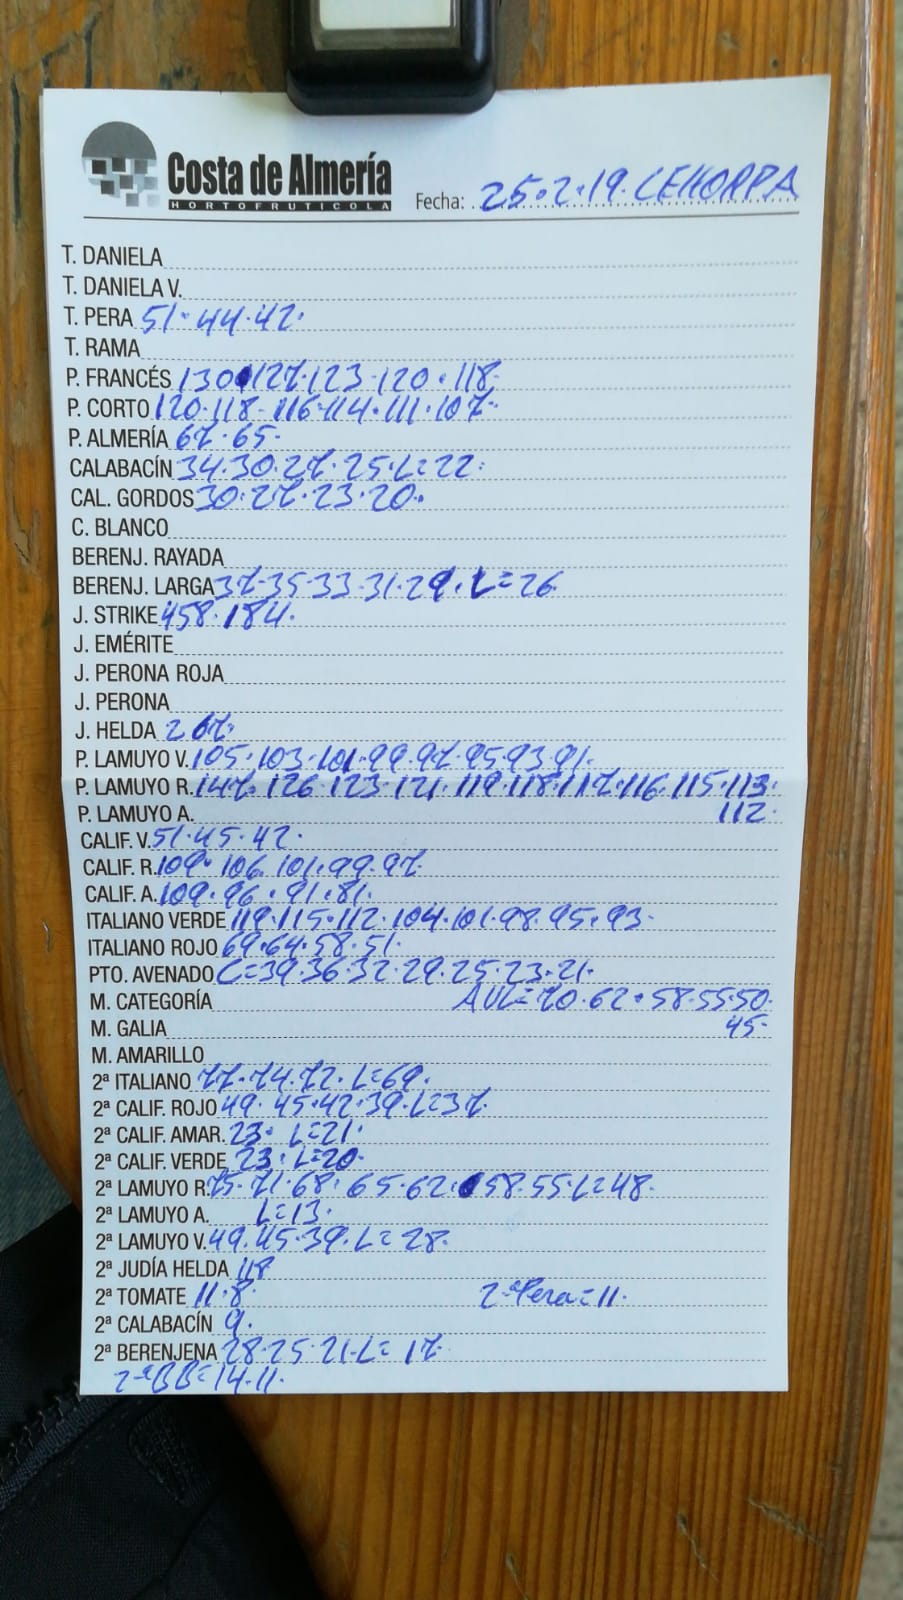 Costa de Almería
HORTOFRUTICOLA
Fecha: 25·2·19· CEHORPA
T. DANIELA
T. DANIELA V.
T. PERA 51·44·42·
T. RAMA
P. FRANCÉS 130·127·123·120·118·
P. CORTO 120·118·116·114·111·107·
P. ALMERÍA 67·65·
CALABACÍN 34·30·27·25·L=22·
CAL. GORDOS 30·27·23·20·
C. BLANCO
BERENJ. RAYADA
BERENJ. LARGA 37·35·33·31·29·L=26
J. STRIKE 458·184·
J. EMÉRITE
J. PERONA ROJA
J. PERONA
J. HELDA 267·
P. LAMUYO V. 105·103·101·99·97·95·93·91·
P. LAMUYO R. 147·126·123·121·119·118·117·116·115·113·
P. LAMUYO A. 112·
CALIF. V. 51·45·42·
CALIF. R. 109·106·101·99·97
CALIF. A. 109·96·91·81·
ITALIANO VERDE 119·115·112·104·101·98·95·93·
ITALIANO ROJO 69·64·58·51·
PTO. AVENADO C=39·36·32·29·25·23·21·
M. CATEGORÍA AVL=70·62·58·55·50·
M. GALIA 45·
M. AMARILLO
2ª ITALIANO 77·74·72·L=69·
2ª CALIF. ROJO 49·45·42·39·L=37·
2ª CALIF. AMAR. 23·L=21·
2ª CALIF. VERDE 23·L=20·
2ª LAMUYO R. 75·71·68·65·62·58·55·L=48·
2ª LAMUYO A. L=13·
2ª LAMUYO V. 49·45·39·L=28·
2ª JUDÍA HELDA 118
2ª TOMATE 11·8· 2ªPera=11·
2ª CALABACÍN 9·
2ª BERENJENA 28·25·21·L=17
2ªBB=14·11·